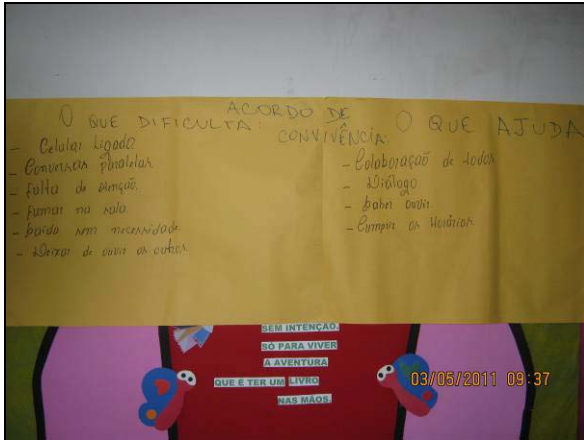 ACORDO DE
CONVIVÊNCIA:
O QUE DIFICULTA:
- Celular Ligado
- Conversas paralelas
- Falta de atenção
- Fumar na sala
- Saída sem necessidade
- Deixar de ouvir os outros
O QUE AJUDA
- Colaboração de todos
- Diálogo
- Saber ouvir
- Cumprir os Horários
SEM INTENÇÃO.
SÓ PARA VIVER
A AVENTURA
QUE É TER UM LIVRO
NAS MÃOS.
03/05/2011 09:37